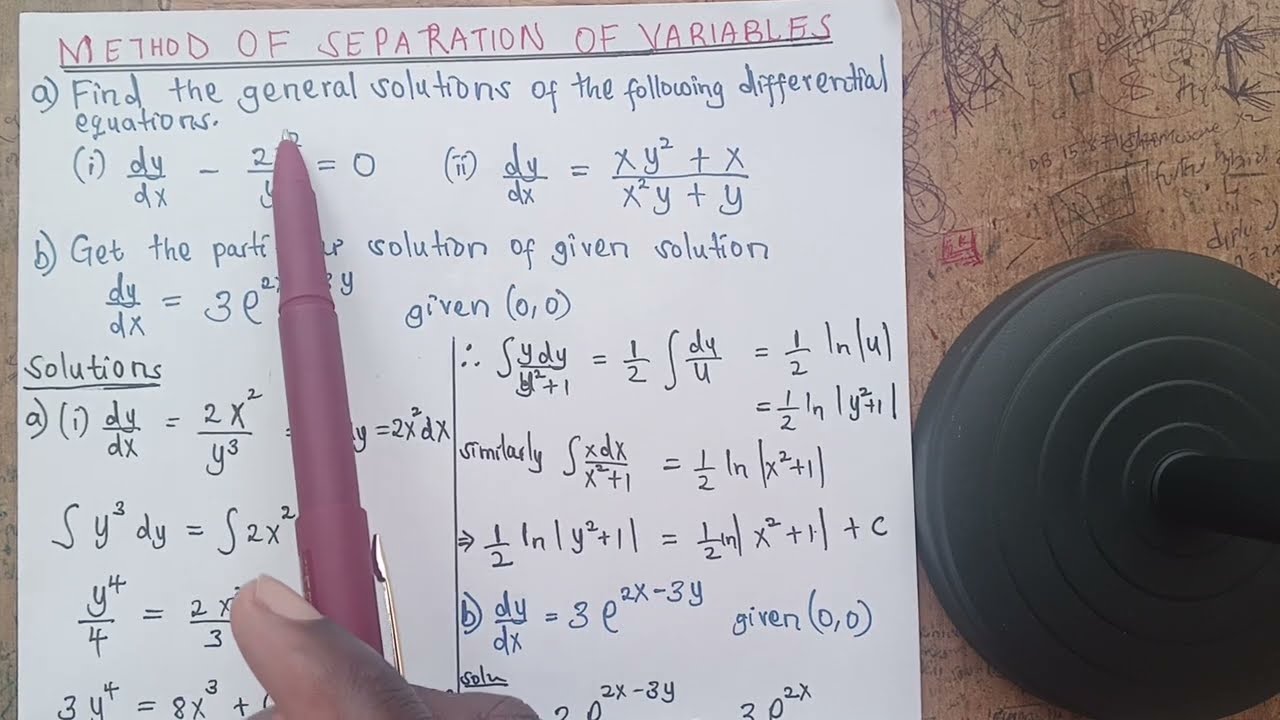 METHOD OF SEPARATION OF VARIABLES
a) Find the general solutions of the following differential
equations.
(i) dy/dx - 2 = 0 (ii) dy/dx = (xy² + x)/(x²y + y)
b) Get the solution of given solution
dy/dx = 3e given (0,0)
Solutions
a) (i) dy/dx = 2x²/y³ = = 2x²dx
∫ y³ dy = ∫ 2x²
y⁴/4 = 2x/3
3y⁴ = 8x³ +
∴ ∫ ydy/y²+1 = 1/2 ∫ du/u = 1/2 ln|u|
= 1/2 ln|y²+1|
similarly ∫ xdx/x²+1 = 1/2 ln|x²+1|
⇒ 1/2 ln|y²+1| = 1/2 ln|x²+1| + C
b) dy/dx = 3e^2x-3y given (0,0)
soln
2x-3y 3e^2x